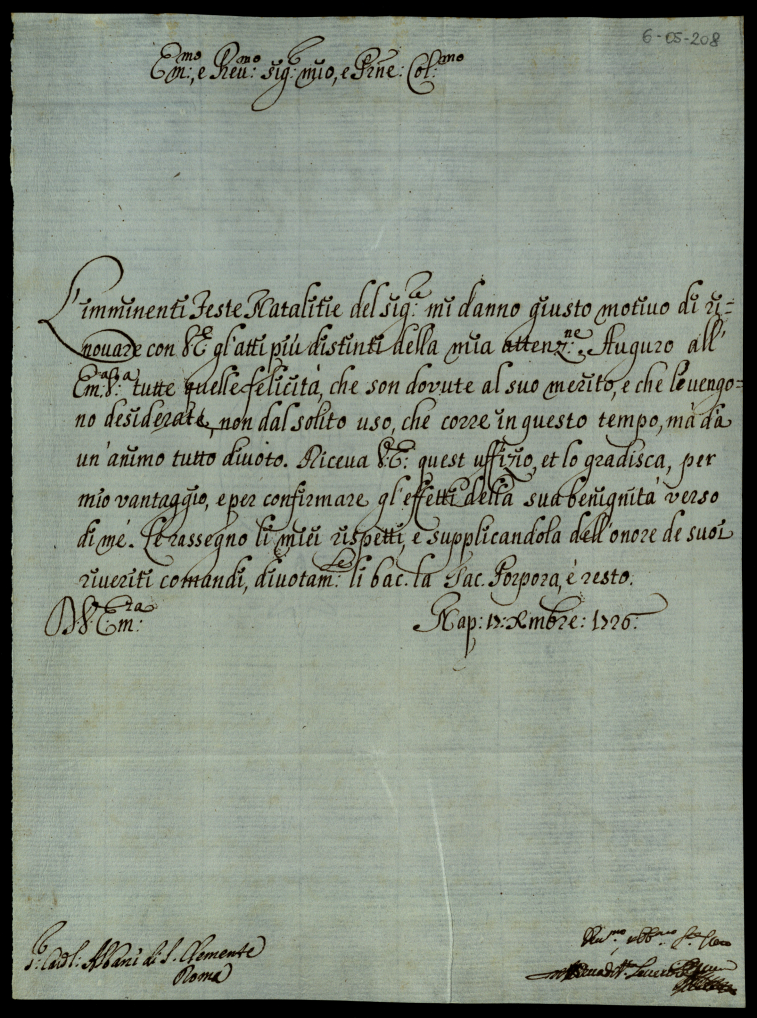 6-05-208
Em:mo, e Reu:mo sig:r mio, e Prne: Col:mo
L'imminenti Feste Natalitie del sig:re mi danno giusto motiuo di ri=
nouare con V.E. gl'atti più distinti della mia attenz:ne. Auguro all'
Em:a V:a tutte quelle felicità, che son dovute al suo merito, e che le uengo=
no desiderate, non dal solito uso, che corre in questo tempo, mà dà
un'animo tutto diuoto. Riceua V.E: quest uffizio, et lo gradisca, per
mio vantaggio, e per confirmare gl'effetti della sua benignità verso
di mé. Le rassegno li miei rispetti, e supplicandola dell'onore de suoi
riueriti comandi, diuotam:te li bac. la Sac. Porpora, è resto.
D V. Em:za Nap: 17: Xmbre: 1726:
S:r Card:l: Albani di S. Clemente
Roma